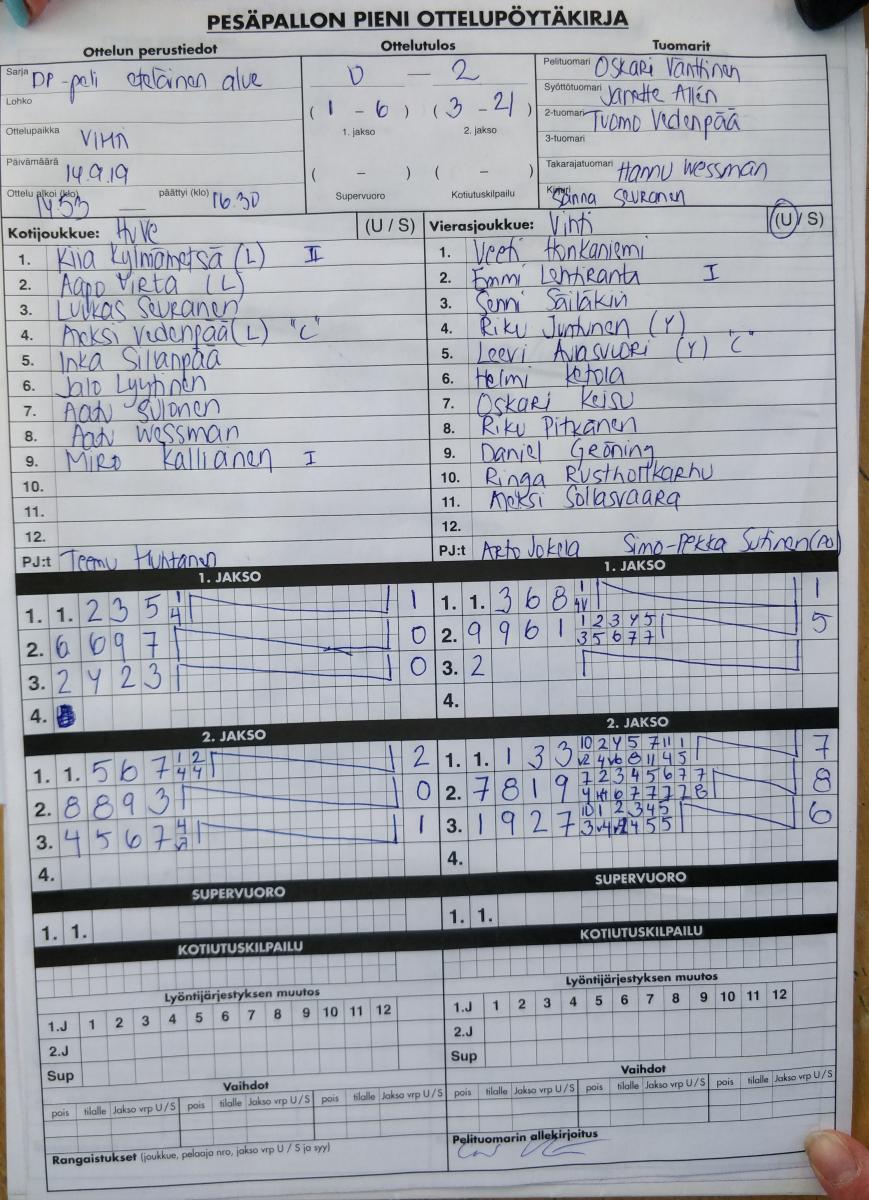 PESÄPALLON PIENI OTTELUPÖYTÄKIRJA
Ottelun perustiedot
Ottelutulos
Tuomarit
Sarja DP-peli eteläinen alue
0 — 2
Pelituomari Oskari Vänttinen
Lohko
( 1 - 6 ) ( 3 - 21 )
Syöttötuomari Janette Allén
1. jakso 2. jakso
2-tuomari Tuomo Vedenpää
Ottelupaikka VIHTI
3-tuomari
Päivämäärä 14.9.19
( - ) ( - )
Takarajatuomari Hannu Wessman
Ottelu alkoi (klo) 1453 — päättyi (klo) 16.30
Supervuoro Kotiutuskilpailu
Kirjuri Sanna Seuranen
Kotijoukkue: HyVe (U / S)
1. Kiia Kylmämetsä (L) II
2. Aapo Virta (L)
3. Luukas Seuranen
4. Aleksi Vedenpää (L) "C"
5. Inka Sillanpää
6. Jalo Lyytinen
7. Aatu Sulonen
8. Aatu Wessman
9. Miro Kalliainen I
10.
11.
12.
PJ:t Teemu Huhtanen
Vierasjoukkue: Vihti (U / S)
1. Veeti Honkaniemi
2. Emmi Lehtiranta I
3. Senni Säiläkivi
4. Riku Juntunen (Y)
5. Leevi Aviasvuori (Y) "C"
6. Helmi Ketola
7. Oskari Keisu
8. Riku Pitkänen
9. Daniel Geöning
10. Ringa Rusthollkarhu
11. Aleksi Sollasvaara
12.
PJ:t Arto Jokela Simo-Pekka Sutinen (PJ)
1. JAKSO
1. 1. 2 3 5 1 4 1
2. 6 6 9 7 0
3. 2 4 2 3 0
4.
1. JAKSO
1. 1. 3 6 8 1 1
2. 9 9 6 1 1 2 3 4 5 5
3 5 6 7 7
3. 2
4.
2. JAKSO
1. 1. 5 6 7 1 2 2
4 4
2. 8 8 9 3 0
3. 4 5 6 7 4 1
4.
2. JAKSO
1. 1. 1 3 3 10 2 4 5 7 11 1 7
2. 7 8 1 9 7 2 3 4 5 6 7 7 8
3. 1 9 2 7 10 1 2 3 4 5 6
4.
SUPERVUORO
1. 1.
SUPERVUORO
1. 1.
KOTIUTUSKILPAILU
KOTIUTUSKILPAILU
Lyöntijärjestyksen muutos
1.J 1 2 3 4 5 6 7 8 9 10 11 12
2.J
Sup
Lyöntijärjestyksen muutos
1.J 1 2 3 4 5 6 7 8 9 10 11 12
2.J
Sup
Vaihdot
pois tilalle Jakso vrp U / S pois tilalle Jakso vrp U / S pois tilalle Jakso vrp U / S
Vaihdot
pois tilalle Jakso vrp U / S pois tilalle Jakso vrp U / S pois tilalle Jakso vrp U / S
Rangaistukset (joukkue, pelaaja nro, jakso vrp U / S ja syy)
Pelituomarin allekirjoitus